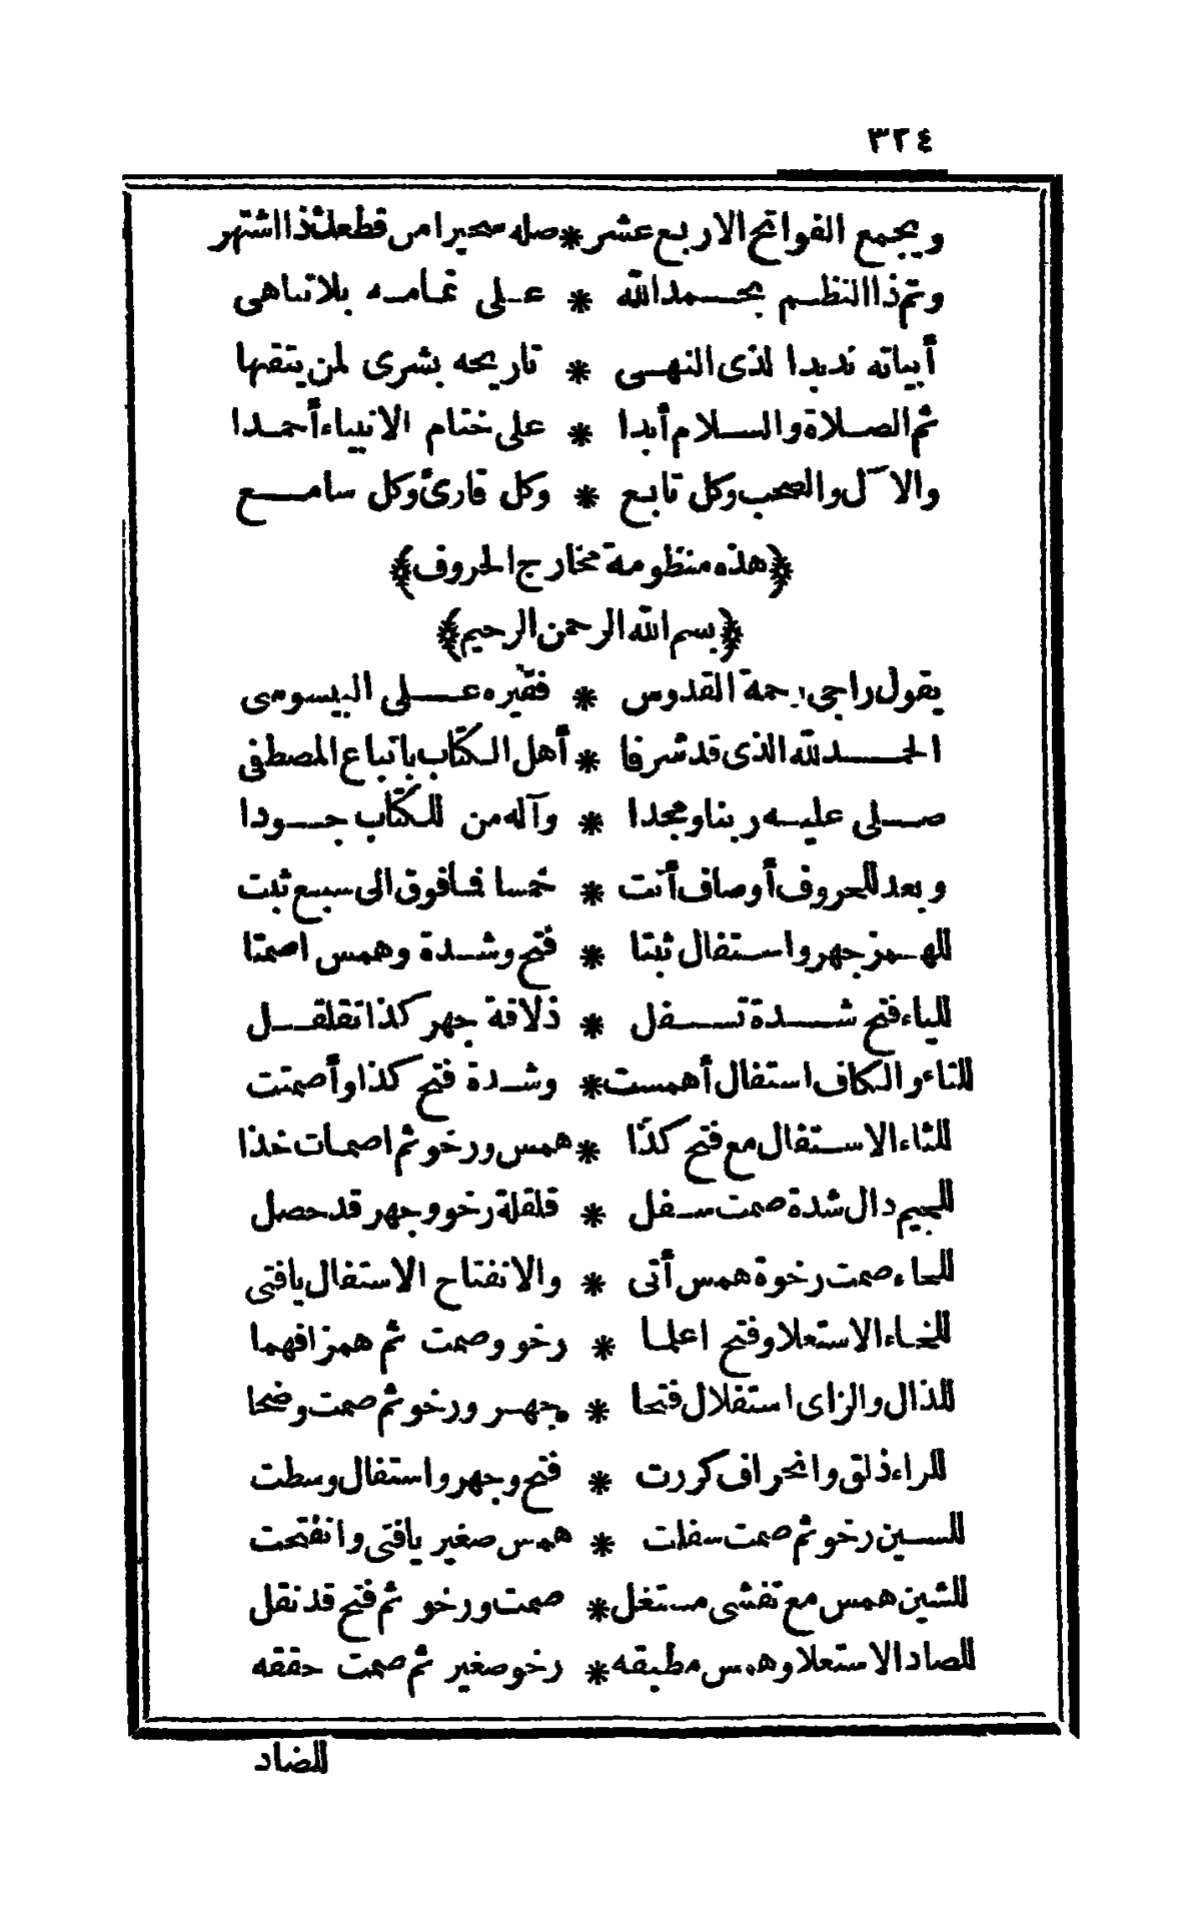 ٣٢٤
ويجمع الفواتح الاربع عشر * صله سحيرا من قطعك ذا اشتهر
وتم ذا النظم بحمد الله * على تمامه بلا تناهى
أبياته ند بدا لذى النهى * تاريخه بشرى لمن يتقنها
ثم الصلاة والسلام أبدا * على ختام الانبياء أحمدا
والاٰل والصحب وكل تابع * وكل قارئ وكل سامع
﴿هذه منظومة مخارج الحروف﴾
﴿بسم الله الرحمن الرحيم﴾
يقول راجى رحمة القدوس * فقيره على البيسوسى
الحمد لله الذى قد شرفا * أهل الكتاب باتباع المصطفى
صلى عليه ربنا ومجدا * وآله من للكتاب جودا
وبعد للحروف أوصاف أتت * خمسا فافوق الى سبع ثبت
للهمز جهر واستفال ثبتا * فتح وشدة وهمس اصمتا
للباء فتح شدة تسفل * ذلاقة جهر كذا تقلقل
للتاء والكاف استفال أهمست * وشدة فتح كذا وأصمتت
للثاء الاستفال مع فتح كذا * همس ورخو ثم اصمات خذا
للجيم دال شدة صمت سفل * قلقلة رخو وجهر قد حصل
للحاء صمت رخوة همس أتى * والانفتاح الاستفال يافتى
للخاء الاستعلا وفتح اعلما * رخو وصمت ثم همز افهما
للذال والزاى استفلال فتحا * جهر ورخو ثم صمت وضحا
للراء ذلق وانحراف كررت * فتح وجهر واستفال وسطت
للسين رخو ثم صمت سفلت * همس صغير يافتى وانفتحت
للشين همس مع تفشى مستغل * صمت ورخو ثم فتح قد نقل
للصاد الاستعلا وهمس مطبقه * رخو صغير ثم صمت حققه
للضاد